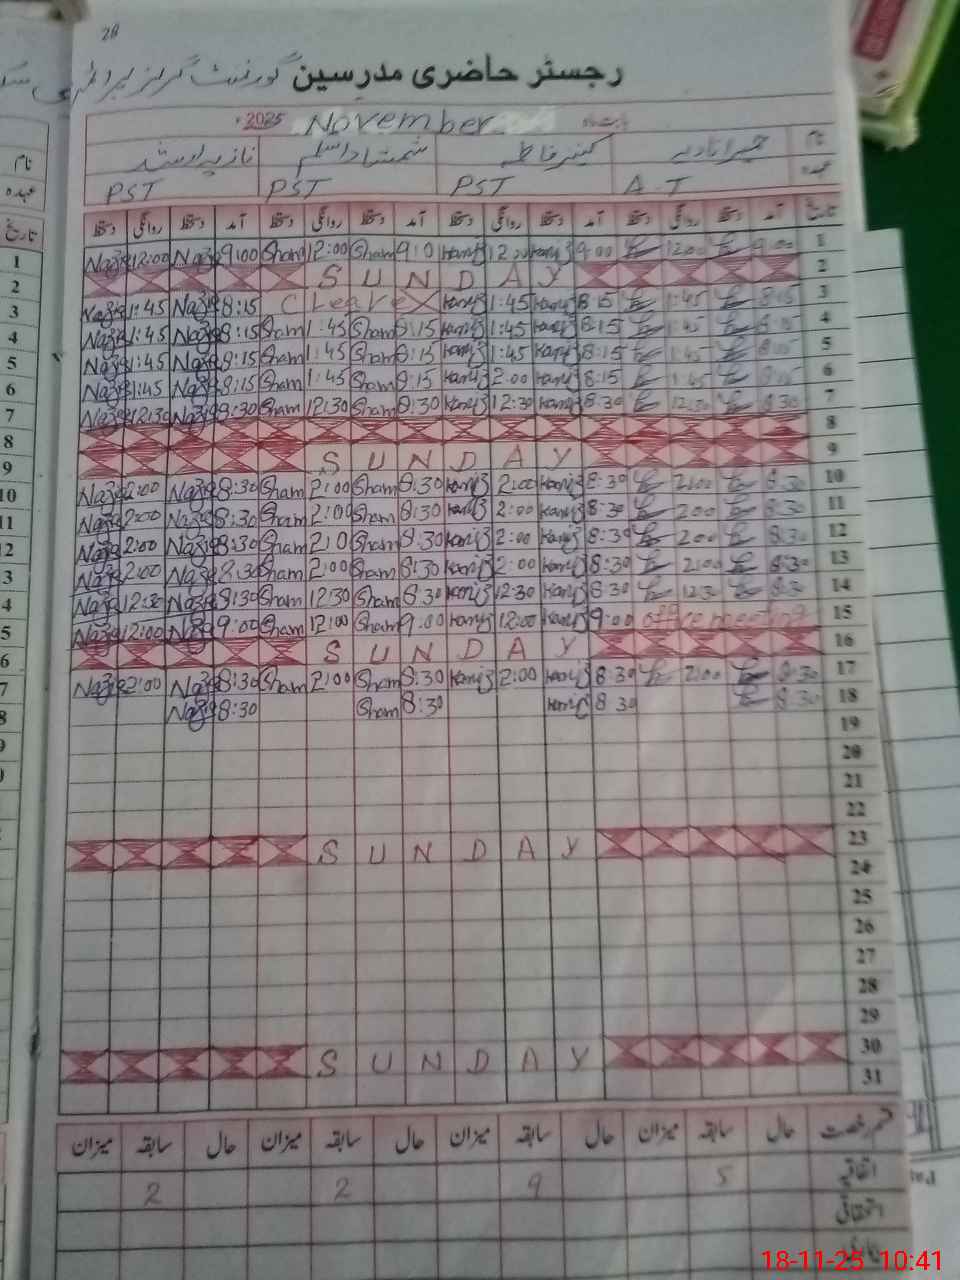 28
رجسٹر حاضری مدرسین گورنمنٹ گرلز
2025 November
نام
عہدہ A.T PST PST PST
تاریخ آمد دستخط روانگی دستخط آمد دستخط روانگی دستخط آمد دستخط روانگی دستخط آمد دستخط روانگی دستخط
Nazia 12:00 Nazia 9:00 Sham 12:00 Sham 9:0 Kaniz 12:00 Kaniz 9:00 12:00 9:00 1
SUNDAY 2
Nazia 1:45 Nazia 8:15 C Leave Kaniz 1:45 Kaniz 8:15 1:45 8:15 3
Nazia 1:45 Nazia 8:15 Sham 1:45 Sham 8:15 Kaniz 1:45 Kaniz 8:15 1:45 8:15 4
Nazia 1:45 Nazia 8:15 Sham 1:45 Sham 8:15 Kaniz 1:45 Kaniz 8:15 1:45 8:15 5
Nazia 1:45 Nazia 8:15 Sham 1:45 Sham 8:15 Kaniz 2:00 Kaniz 8:15 1:45 8:15 6
Nazia 12:30 Nazia 8:30 Sham 12:30 Sham 8:30 Kaniz 12:30 Kaniz 8:30 12:30 8:30 7
8
SUNDAY 9
Nazia 2:00 Nazia 8:30 Sham 2:00 Sham 8:30 Kaniz 2:00 Kaniz 8:30 2:00 8:30 10
Nazia 2:00 Nazia 8:30 Sham 2:00 Sham 8:30 Kaniz 2:00 Kaniz 8:30 2:00 8:30 11
Nazia 2:00 Nazia 8:30 Sham 2:0 Sham 8:30 Kaniz 2:00 Kaniz 8:30 2:00 8:30 12
Nazia 2:00 Nazia 8:30 Sham 2:00 Sham 8:30 Kaniz 2:00 Kaniz 8:30 2:00 8:30 13
Nazia 12:30 Nazia 8:30 Sham 12:30 Sham 8:30 Kaniz 12:30 Kaniz 8:30 12:30 8:30 14
Nazia 12:00 Nazia 9:00 Sham 12:00 Sham 9:00 Kaniz 12:00 Kaniz 9:00 office meeting 15
SUNDAY 16
Nazia 2:00 Nazia 8:30 Sham 2:00 Sham 8:30 Kaniz 2:00 Kaniz 8:30 2:00 8:30 17
Nazia 8:30 Sham 8:30 Kaniz 8:30 8:30 18
19
20
21
22
SUNDAY 23
24
25
26
27
28
29
SUNDAY 30
31
قسم رخصت حال سابقہ میزان حال سابقہ میزان حال سابقہ میزان حال سابقہ میزان
اتفاقیہ 5 9 2 2
استحقاقی
18-11-25 10:41